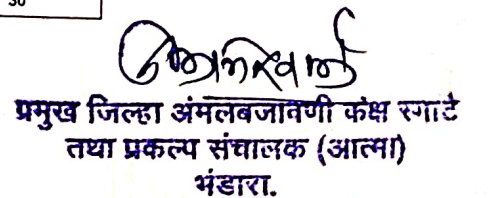 30
प्रमुख जिल्हा अंमलबजावणी कक्ष स्मार्ट
तथा प्रकल्प संचालक (आत्मा)
भंडारा.